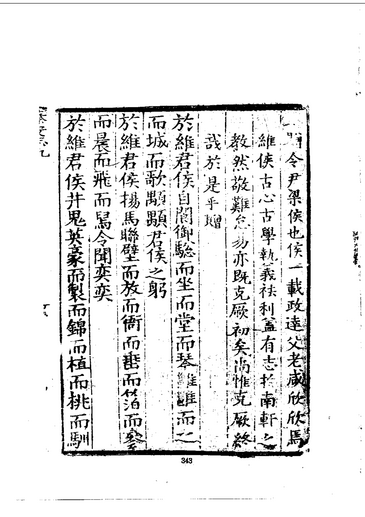 令尹梁侯也侯一載政達父老咸欣欣焉
維侯古心古學執義袪利蓋有志於南軒之
教然敬難怠易亦既克厥初矣尚惟克厥終
哉於是乎贈
於維君侯自閤御驄而坐而堂而琴雝雝而之
而城而歌顒顒君侯之躬
於維君侯揚馬聯壁而放而衙而琶而箔而
而晨而飛而舄令聞奕奕
於維君侯井鬼英豪而製而錦而植而桃而馴
343